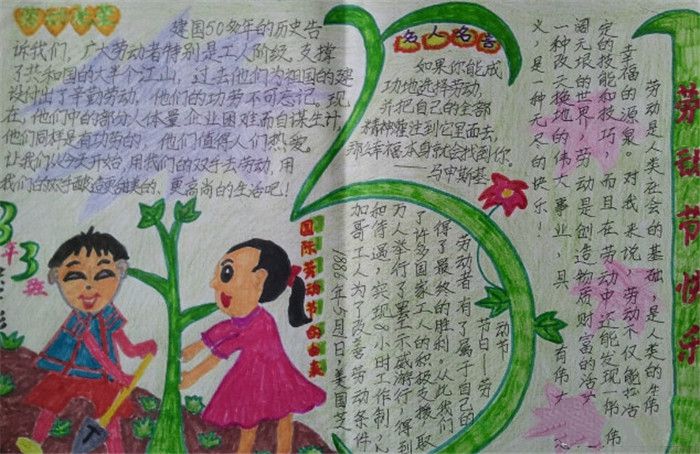 建国50多年的历史告
诉我们，广大劳动者特别是工人阶级，支撑
了共和国的大半个江山，过去他们为祖国的建
设付出了辛勤劳动，他们的功劳不可忘记。现
在，他们中的部分人体量企业困难而自谋生计，
他们同样是有功劳的，他们值得人们热爱。
让我们从今天开始，用我们的双手去劳动，用
我们的双手酿造更纯美的、更高尚的生活吧！
3年3班
名人名言
如果你能成
功地选择劳动，
并把自己的全部
精神灌注到它里面去，
那么幸福本身就会找到你。
——乌申斯基
劳动节快乐
劳动是人类在会的基础，是人类的生
幸福的源泉。对我来说，劳动不仅能
定的技能和技巧，而且在劳动中还能发现一
阔无垠的世界。劳动是创造物质财富的活
一种改天换地的伟大事业，具有伟大
义，是一种无尽的快乐！
国际劳动节的由来
1886年5月1日，美国芝
加哥工人为了改善劳动条件
和待遇，实现8小时工作制，
人举行了罢工示威游行，得到
了许多国家工人的积极支援，取
得了最终的胜利。从此我们
劳动者有了属于自己的
节日—劳
动节